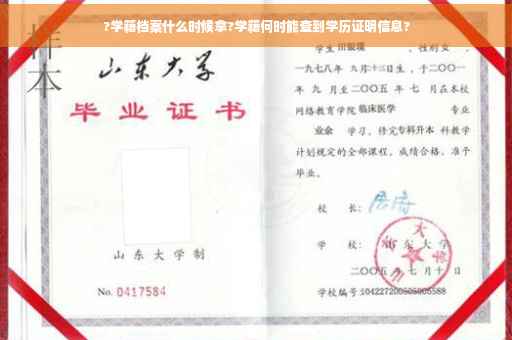 ?学籍档案什么时候拿?学籍何时能查到学历证明信息?
样本
山东大学
毕业证书
山东大学制
No. 0417584
学生 田银璞 ，性别 女 ，
一九七八年 九月十三日生，于二〇〇一
年 九 月至二〇〇五 年 七 月在本校
网络教育学院 临床医学 专业
业余 学习，修完 专科升本 科教学
计划规定的全部课程，成绩合格，准予
毕业。
校 长：
学 校：山东大学
二〇〇五 年 七 月 十 日
学校编号：104227200505005588